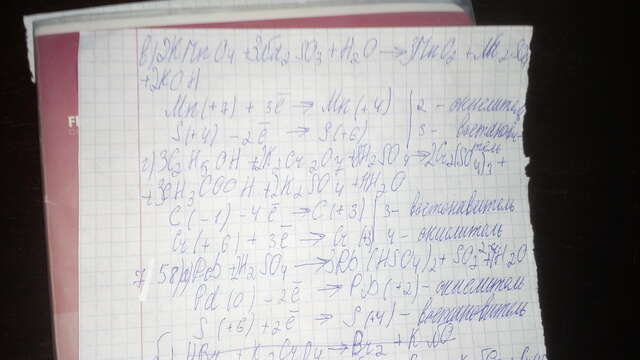 в) 2KMnO4 + 3Na2SO3 + H2O → MnO2 + Na2SO4
+2KOH
Mn(+7) + 3ē → Mn(+4) | 2 - окислитель
S(+4) - 2ē → S(+6) | 3 - востанови-
тель
г) 3C2H5OH + 2K2Cr2O7 + 8H2SO4 → 2Cr2(SO4)3 +
+ 3CH3COOH + 2K2SO4 + 11H2O
C(-1) - 4ē → C(+3) | 3 - востонавитель
Cr(+6) + 3ē → Cr(+3) | 4 - окислитель
7) 58 а) Pb + H2SO4 → Pb(HSO4)2 + SO2 + H2O
Pb(0) - 2ē → Pb(+2) - окислитель
S(+6) + 2ē → S(+4) - востановитель
б) HBr + K2CrO4 → Br2 +